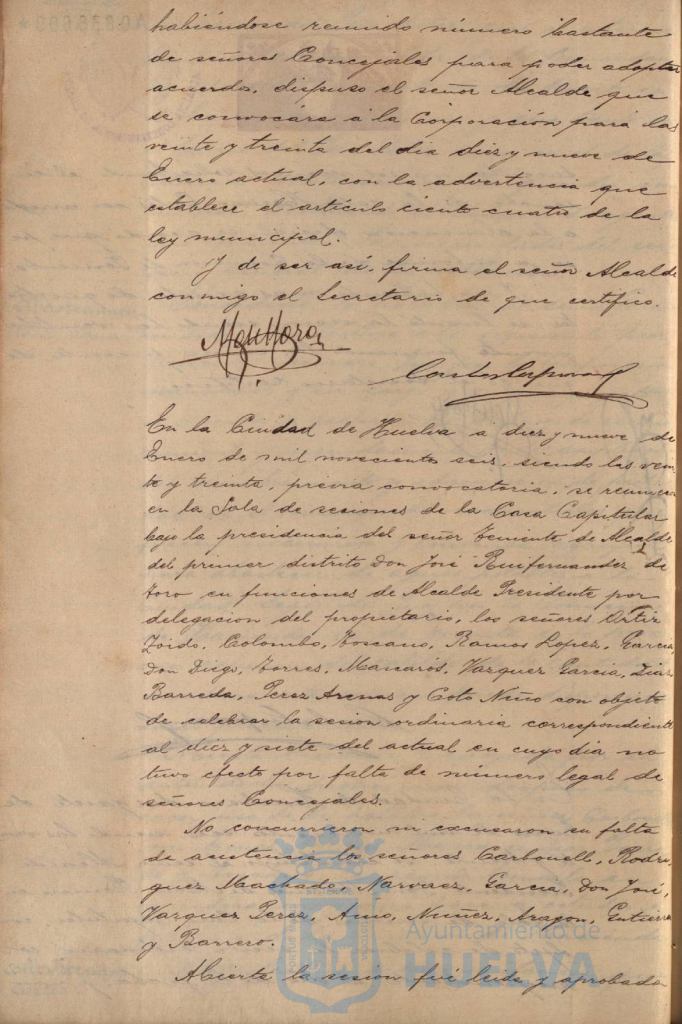 habiéndose reunido número bastante
de señores Concejales para poder adoptar
acuerdo, dispuso el señor Alcalde que
se convocára á la Corporación para las
veinte y treinta del dia diez y nueve de
Enero actual, con la advertencia que
establece el artículo ciento cuatro de la
ley municipal.
Y de ser así, firma el señor Alcalde
conmigo el Secretario de que certifico.
En la Ciudad de Huelva a diez y nueve de
Enero de mil novecientos seis, siendo las vein
te y treinta, prévia convocatoria, se reunieron
en la Sala de sesiones de la Casa Capitular
bajo la presidencia del señor Teniente de Alcalde
del primer distrito Don José Ruifernandez de
Toro en funciones de Alcalde Presidente por
delegacion del propietario, los señores Ortiz
Zoido, Colombo, Toscano, Ramos Lopez, Garcia,
Don Diego, Torres, Mascarós, Vazquez Garcia, Diaz
Barreda, Perez Arenas y Coto Niño con objeto
de celebrar la sesion ordinaria correspondiente
al diez y siete del actual en cuyo dia no
tuvo efecto por falta de número legal de
señores Concejales.
No concurrieron ni excusaron su falta
de asistencia los señores Carbonell, Rodri
guez Machado, Narvaez, Garcia, Don José,
Vazquez Perez, Amo, Nuñez, Aragon, Gutierrez
y Barrero.
Abierta la sesion fué leida y aprobada
Ayuntamiento de
HUELVA